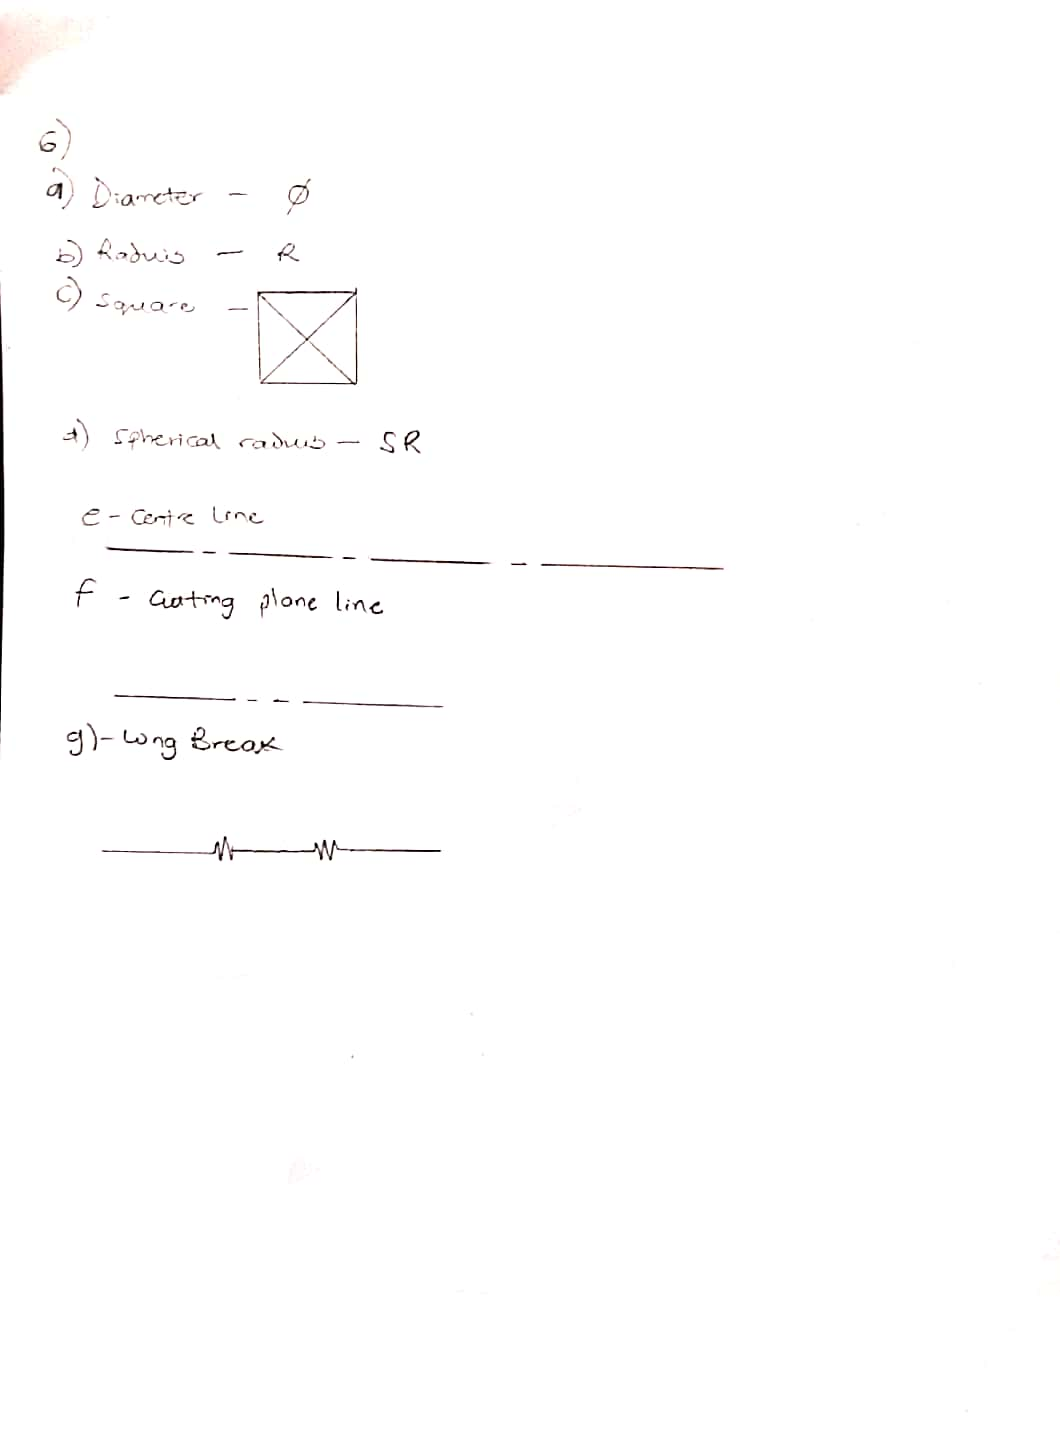 6)
a) Diameter - ∅
b) Raduis - R
c) Square -
d) Spherical raduis - SR
e - Centre line
f - Cutting plane line
g) - Long Break